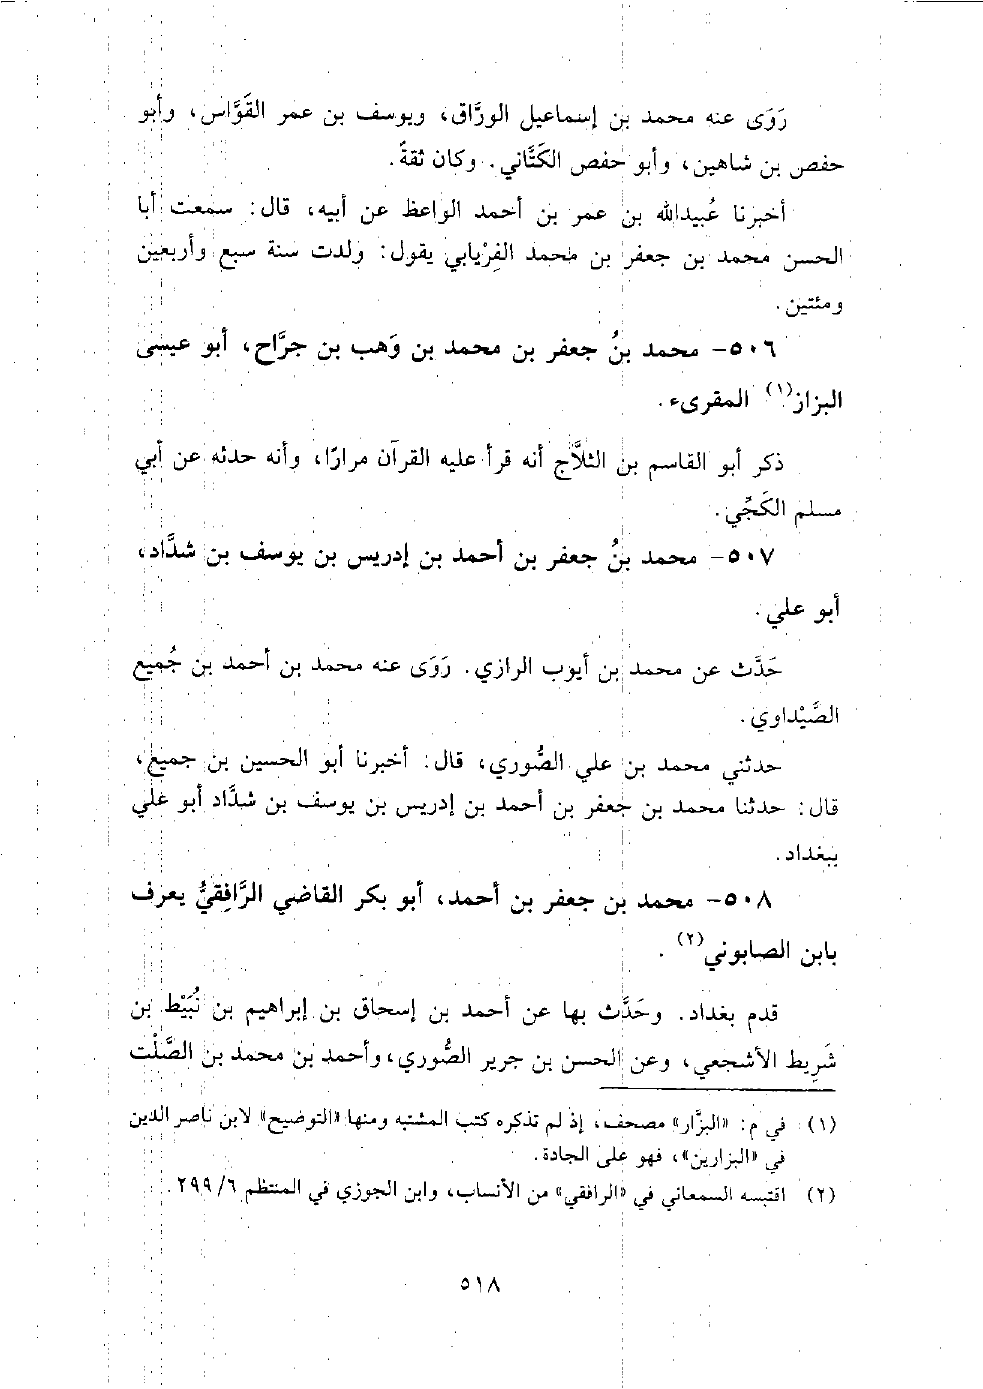 رَوَى عنه محمد بن إسماعيل الورَّاق، ويوسف بن عمر القَوَّاس، وأبو
حفص بن شاهين، وأبو حفص الكَتَّاني. وكان ثقةً.
أخبرنا عُبيدالله بن عمر بن أحمد الواعظ عن أبيه، قال: سمعت أبا
الحسن محمد بن جعفر بن محمد الفِرْيابي يقول: ولدت سنة سبع وأربعين
ومئتين.
٥٠٦- محمد بنُ جعفر بن محمد بن وَهب بن جرَّاح، أبو عيسى
البزاز(١) المقرىء.
ذكر أبو القاسم بن الثلَّاج أنه قرأ عليه القرآن مرارًا، وأنه حدثه عن أبي
مسلم الكَجِّي.
٥٠٧- محمد بنُ جعفر بن أحمد بن إدريس بن يوسف بن شدَّاد،
أبو علي.
حَدَّث عن محمد بن أيوب الرازي. رَوَى عنه محمد بن أحمد بن جُميع
الصَّيْداوي.
حدثني محمد بن علي الصُّوري، قال: أخبرنا أبو الحسين بن جميع،
قال: حدثنا محمد بن جعفر بن أحمد بن إدريس بن يوسف بن شدَّاد أبو علي
ببغداد.
٥٠٨- محمد بن جعفر بن أحمد، أبو بكر القاضي الرَّافِقيُّ يعرف
بابن الصابوني(٢).
قدم بغداد. وحَدَّث بها عن أحمد بن إسحاق بن إبراهيم بن نُبَيْط بن
شَرِيط الأشجعي، وعن الحسن بن جرير الصُّوري، وأحمد بن محمد بن الصَّلْت
(١) في م: «البزَّار» مصحف، إذ لم تذكره كتب المشتبه ومنها «التوضيح» لابن ناصر الدين
في «البزارين»، فهو على الجادة.
(٢) اقتبسه السمعاني في «الرافقي» من الأنساب، وابن الجوزي في المنتظم ٦/ ٢٩٩.
٥١٨